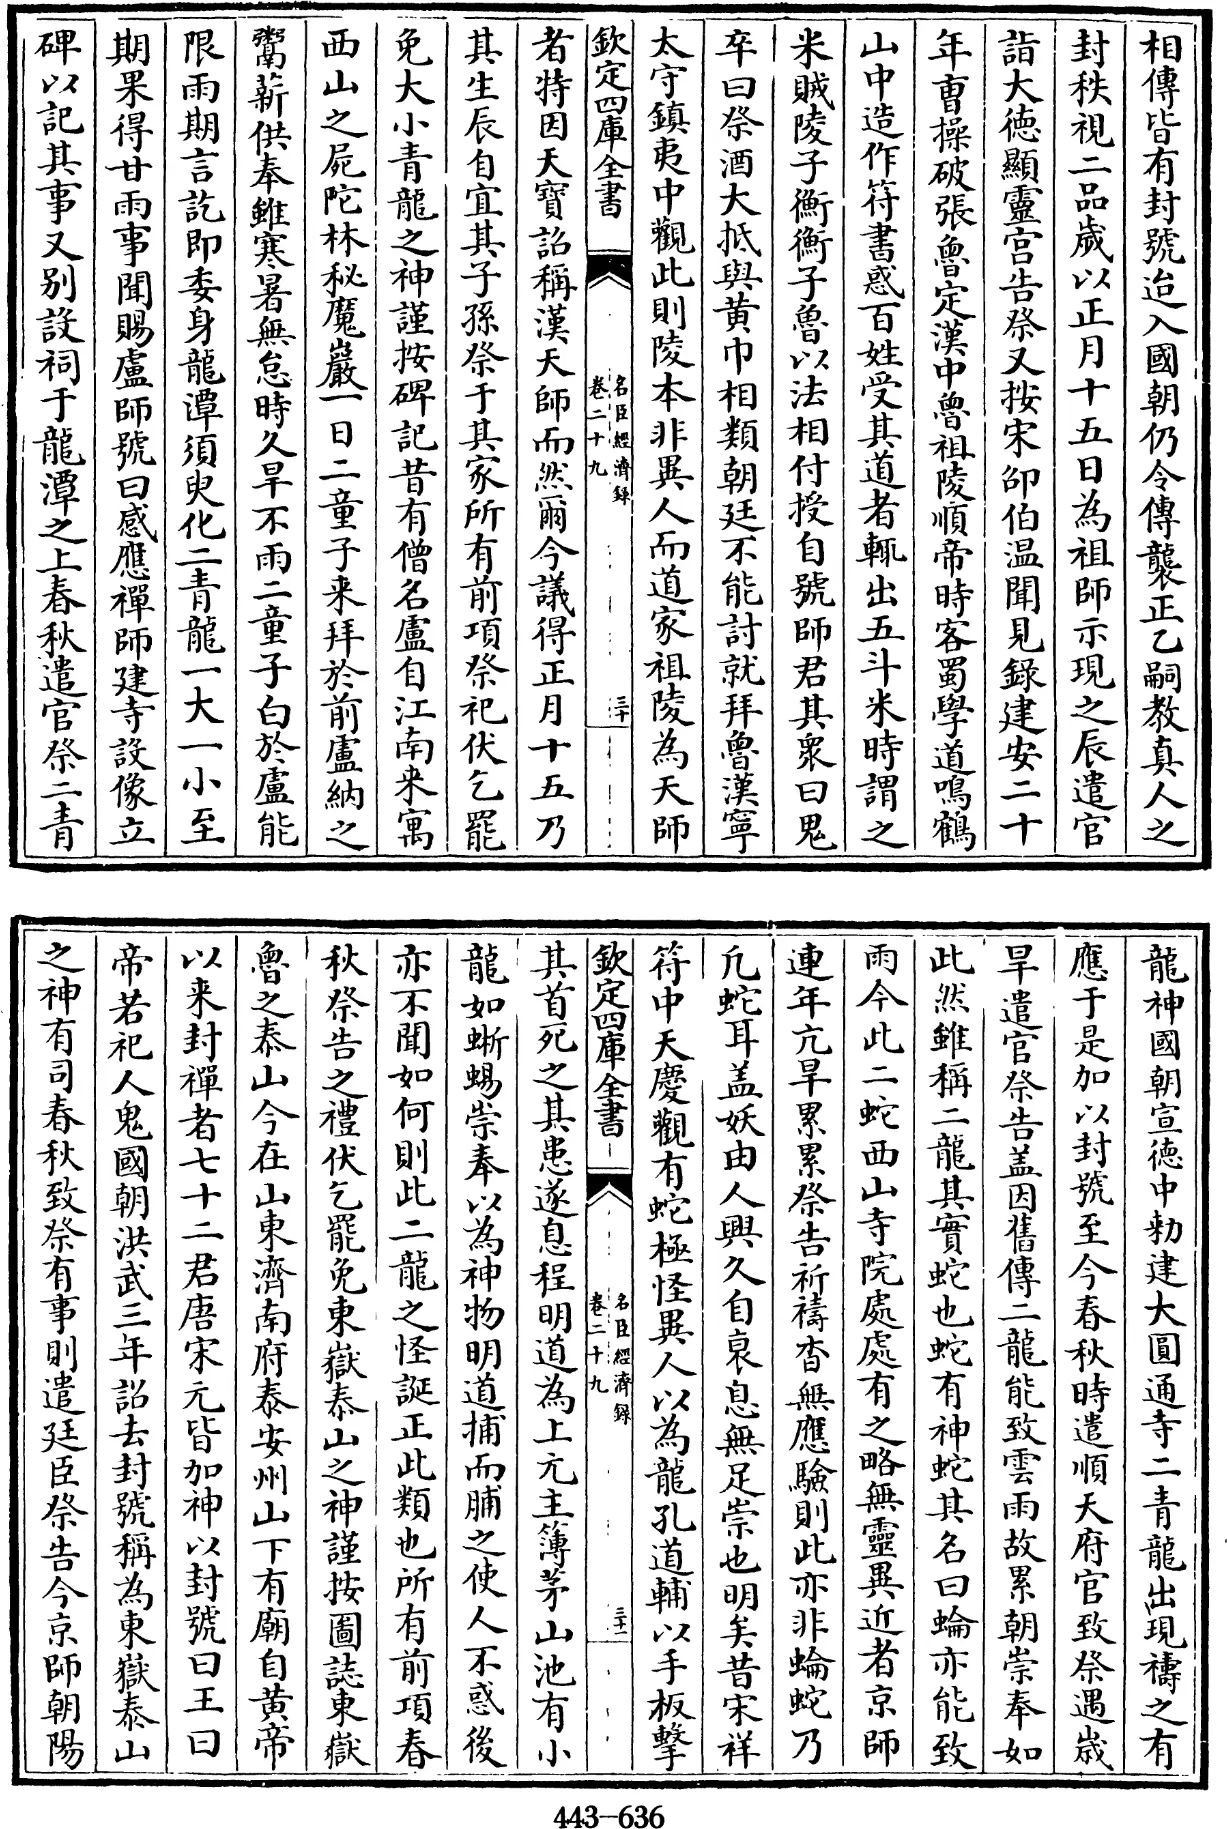 相傳皆有封號迨入國朝仍令傳襲正乙嗣教真人之
封秩視二品歲以正月十五日為祖師示現之辰遣官
詣大德顯靈宫告祭又按宋邵伯温聞見錄建安二十
年曹操破張魯定漢中魯祖陵順帝時客蜀學道鳴鶴
山中造作符書惑百姓受其道者輒出五斗米時謂之
米賊陵子衡衡子魯以法相付授自號師君其衆曰鬼
卒曰祭酒大抵與黄巾相類朝廷不能討就拜魯漢寧
太守鎮夷中觀此則陵本非異人而道家祖陵為天師
欽定四庫全書
名臣經濟録
卷二十九
三十
者特因天寶詔稱漢天師而然爾今議得正月十五乃
其生辰自宜其子孫祭于其家所有前項祭祀伏乞罷
免大小青龍之神謹按碑記昔有僧名盧自江南来寓
西山之屍陀林秘魔巖一日二童子来拜於前盧納之
鬻薪供奉雖寒暑無怠時久旱不雨二童子白於盧能
限雨期言訖即委身龍潭須臾化二青龍一大一小至
期果得甘雨事聞賜盧師號曰感應禪師建寺設像立
碑以記其事又别設祠于龍潭之上春秋遣官祭二青
龍神國朝宣德中勅建大圓通寺二青龍出現禱之有
應于是加以封號至今春秋時遣順天府官致祭遇歲
旱遣官祭告盖因舊傳二龍能致雲雨故累朝崇奉如
此然雖稱二龍其實蛇也蛇有神蛇其名曰蜦亦能致
雨今此二蛇西山寺院處處有之略無靈異近者京師
連年亢旱累累祭告祈禱杳無應驗則此亦非蜦蛇乃
凢蛇耳盖妖由人興久自衰息無足崇也明矣昔宋祥
符中天慶觀有蛇極怪異人以為龍孔道輔以手板擊
欽定四庫全書
名臣經濟録
卷二十九
三十一
其首死之其患遂息程明道為上元主簿茅山池有小
龍如蜥蜴崇奉以為神物明道捕而脯之使人不惑後
亦不聞如何則此二龍之怪誕正此類也所有前項春
秋祭告之禮伏乞罷免東嶽泰山之神謹按圖誌東嶽
魯之泰山今在山東濟南府泰安州山下有廟自黄帝
以来封禪者七十二君唐宋元皆加神以封號曰王曰
帝若祀人鬼國朝洪武三年詔去封號稱為東嶽泰山
之神有司春秋致祭有事則遣廷臣祭告今京師朝陽
443-636